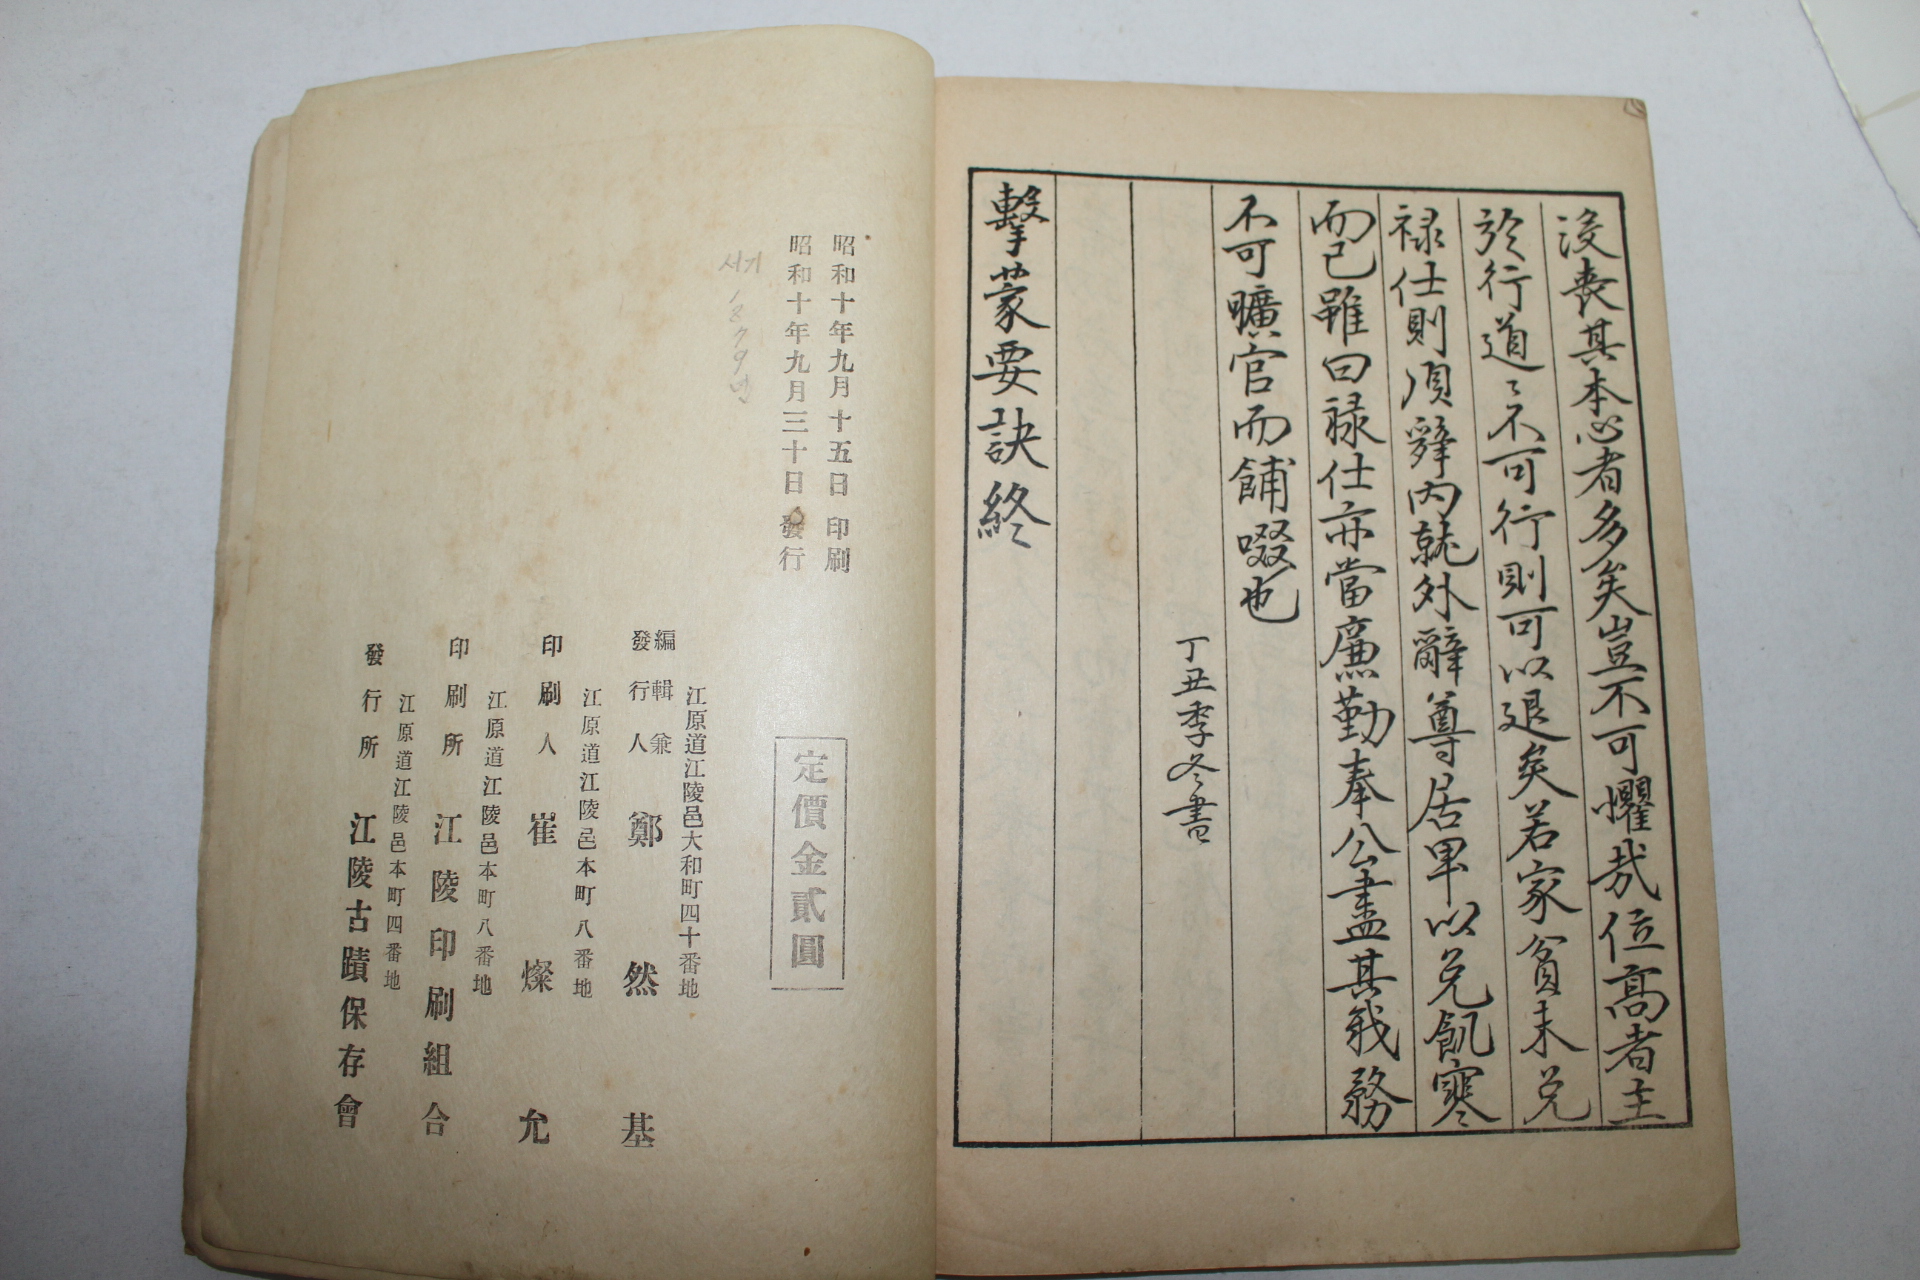 没喪其本心者多矣豈不可懼哉位高者主
於行道〻不可行則可以退矣若家貧未免
禄仕則須辞內就外辭尊居卑以免飢寒
而已雖曰禄仕亦當廉勤奉公盡其職務
不可曠官而餔啜也
丁丑季冬書
擊蒙要訣終
昭和十年九月十五日印刷
昭和十年九月三十日發行
서기 1879년
定價金貳圓
江原道江陵邑大和町四十番地
編輯兼
發行人 鄭然基
江原道江陵邑本町八番地
印刷人 崔燦允
江原道江陵邑本町八番地
印刷所 江陵印刷組合
江原道江陵邑本町四番地
發行所 江陵古蹟保存會